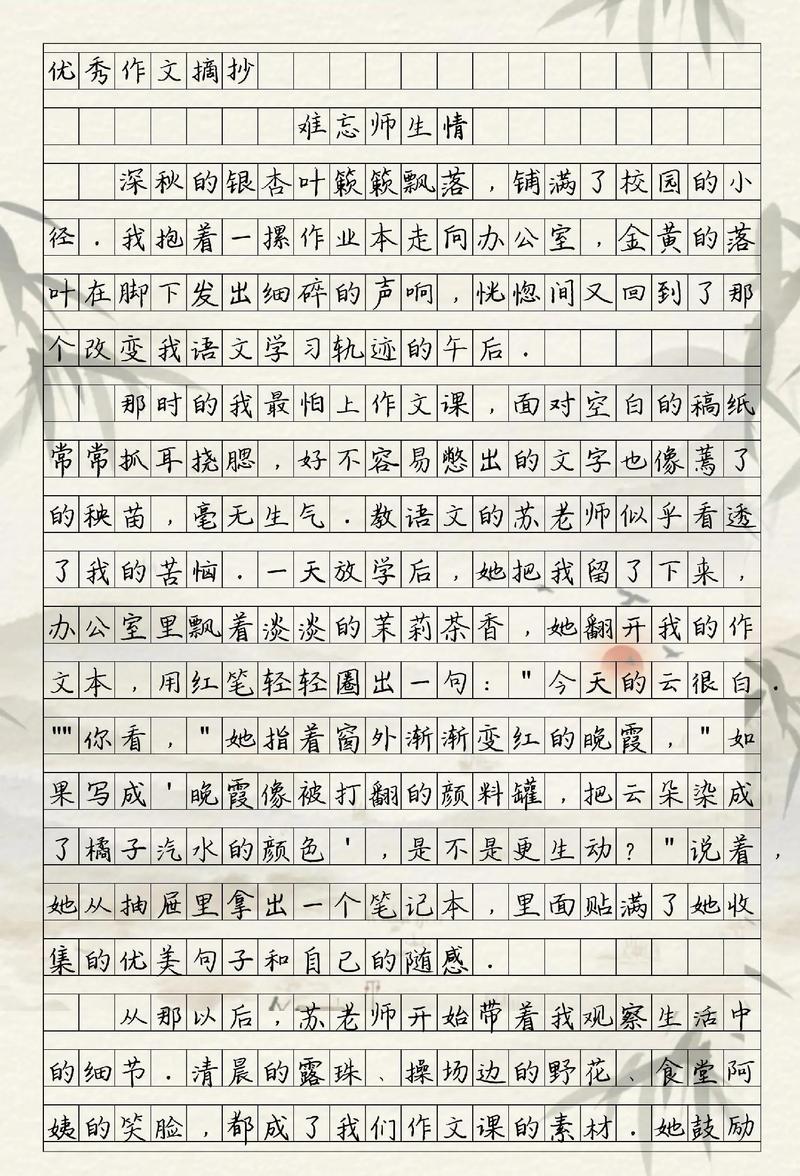 优秀作文摘抄
难忘师生情
深秋的银杏叶簌簌飘落，铺满了校园的小
径．我抱着一摞作业本走向办公室，金黄的落
叶在脚下发出细碎的声响，恍惚间又回到了那
个改变我语文学习轨迹的午后．
那时的我最怕上作文课，面对空白的稿纸
常常抓耳挠腮，好不容易憋出的文字也像蔫了
的秧苗，毫无生气．教语文的苏老师似乎看透
了我的苦恼．一天放学后，她把我留了下来，
办公室里飘着淡淡的茉莉茶香，她翻开我的作
文本，用红笔轻轻圈出一句："今天的云很白．
""你看，"她指着窗外渐渐变红的晚霞，"如
果写成'晚霞像被打翻的颜料罐，把云朵染成
了橘子汽水的颜色'，是不是更生动？"说着，
她从抽屉里拿出一个笔记本，里面贴满了她收
集的优美句子和自己的随感．
从那以后，苏老师开始带着我观察生活中
的细节．清晨的露珠、操场边的野花、食堂阿
姨的笑脸，都成了我们作文课的素材．她鼓励